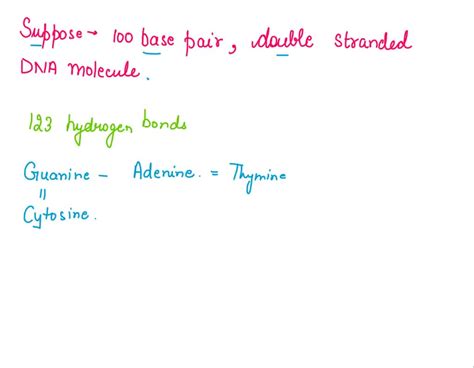 Suppose → 100 base pair, double stranded
DNA molecule.
123 hydrogen bonds
Guanine - Adenine. = Thymine
॥
Cytosine.